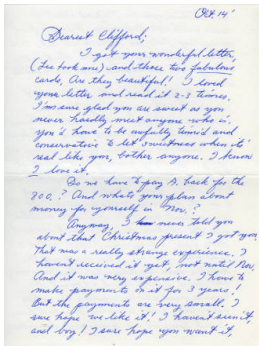 Oct. 14
Dearest Clifford;
I got your wonderful letter,
and those two fabulous
cards. Are they beautiful! I loved
your letter and read it 2-3 times.
I'm sure glad you are sweet as you
never hardly meet anyone who is.
you'd have to be awfully timid and
conservative to let sweetness when it's
real like you, bother anyone. I know
I love it.
Do we have to pay A. back for the
800.? And what's your plan about
money for yourself in Nov.?
Anyway, I never told you
about that Christmas present I got you.
That was a really strange experience. I
haven't received it yet, not until Nov.
And it was very expensive. I have to
make payments on it for 3 years!
But the payments are very small. I
sure hope we like it! I haven't seen it,
and boy! I sure hope you want it,